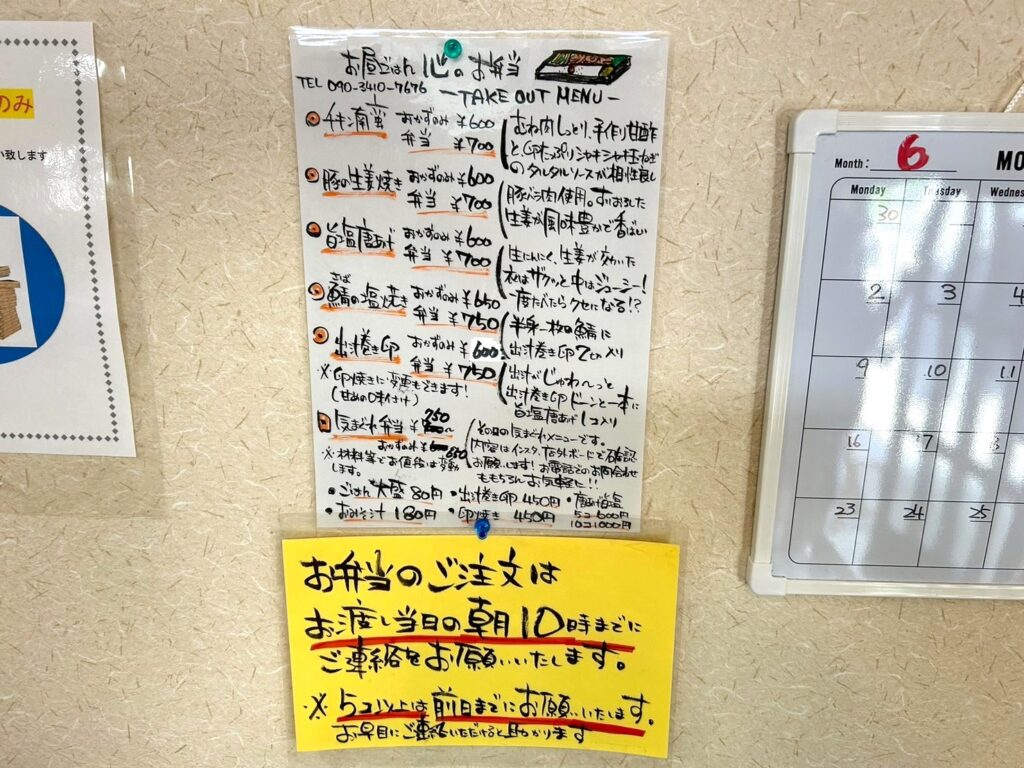 のみ
い致します
お昼ごはん 心のお弁当
TEL 090-3410-7676
-TAKE OUT MENU-
チキン南蛮 おかずのみ ¥600
弁当 ¥700
むね肉しっとり、手作り甘酢
と、卵たっぷりシャキシャキ玉ねぎ
のタルタルソースが相性良し
豚の生姜焼き おかずのみ ¥600
弁当 ¥700
豚バラ肉使用。すりおろした
生姜が風味豊かで香ばしい
旨塩唐あげ おかずのみ ¥600
弁当 ¥700
生にんにく、生姜が効いた
衣はザクッと中はジューシー!
一度たべたらクセになる!?
さば
鯖の塩焼き おかずのみ ¥650
弁当 ¥750
半身一枚の鯖に
出汁巻き卵2切入り
出汁巻き卵 おかずのみ ¥600
弁当 ¥750
出汁がじゅわ〜っと
出汁巻き卵ドーンと一本に
旨塩唐あげ1コ入り
※卵焼きに変更もできます!
(甘めの味付け)
気まぐれ弁当 ¥750〜
おかずのみ ¥650
※材料等でお値段は変動
します。
その日の気まぐれメニューです。
内容はインスタ、店外ボードで確認
お願いします!お電話でのお問合わせ
ももちろんお気軽に!!
・ごはん大盛 80円 ・出汁巻き卵 450円 ・唐あげ旨塩
・おみそ汁 180円 ・卵焼き 450円 5コ 600円
10コ 1000円
お弁当のご注文は
お渡し当日の朝10時までに
ご連絡をお願いいたします。
※ 5コ以上は前日までにお願いいたします。
お早目にご連絡いただけると助かります
Month: 6 MO
Monday Tuesday Wednes
30
2 3 4
9 10 11
16 17 18
23 24 25